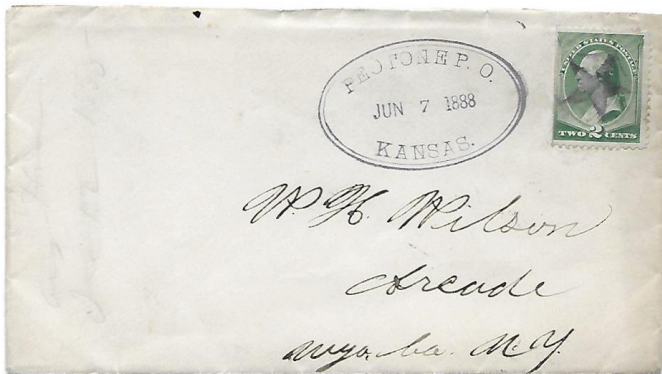 PEOTONE P. O.
JUN 7 1888
KANSAS.
UNITED STATES POSTAGE
TWO 2 CENTS
W. H. Wilson
Arcade
Wyo. Co. N. Y.